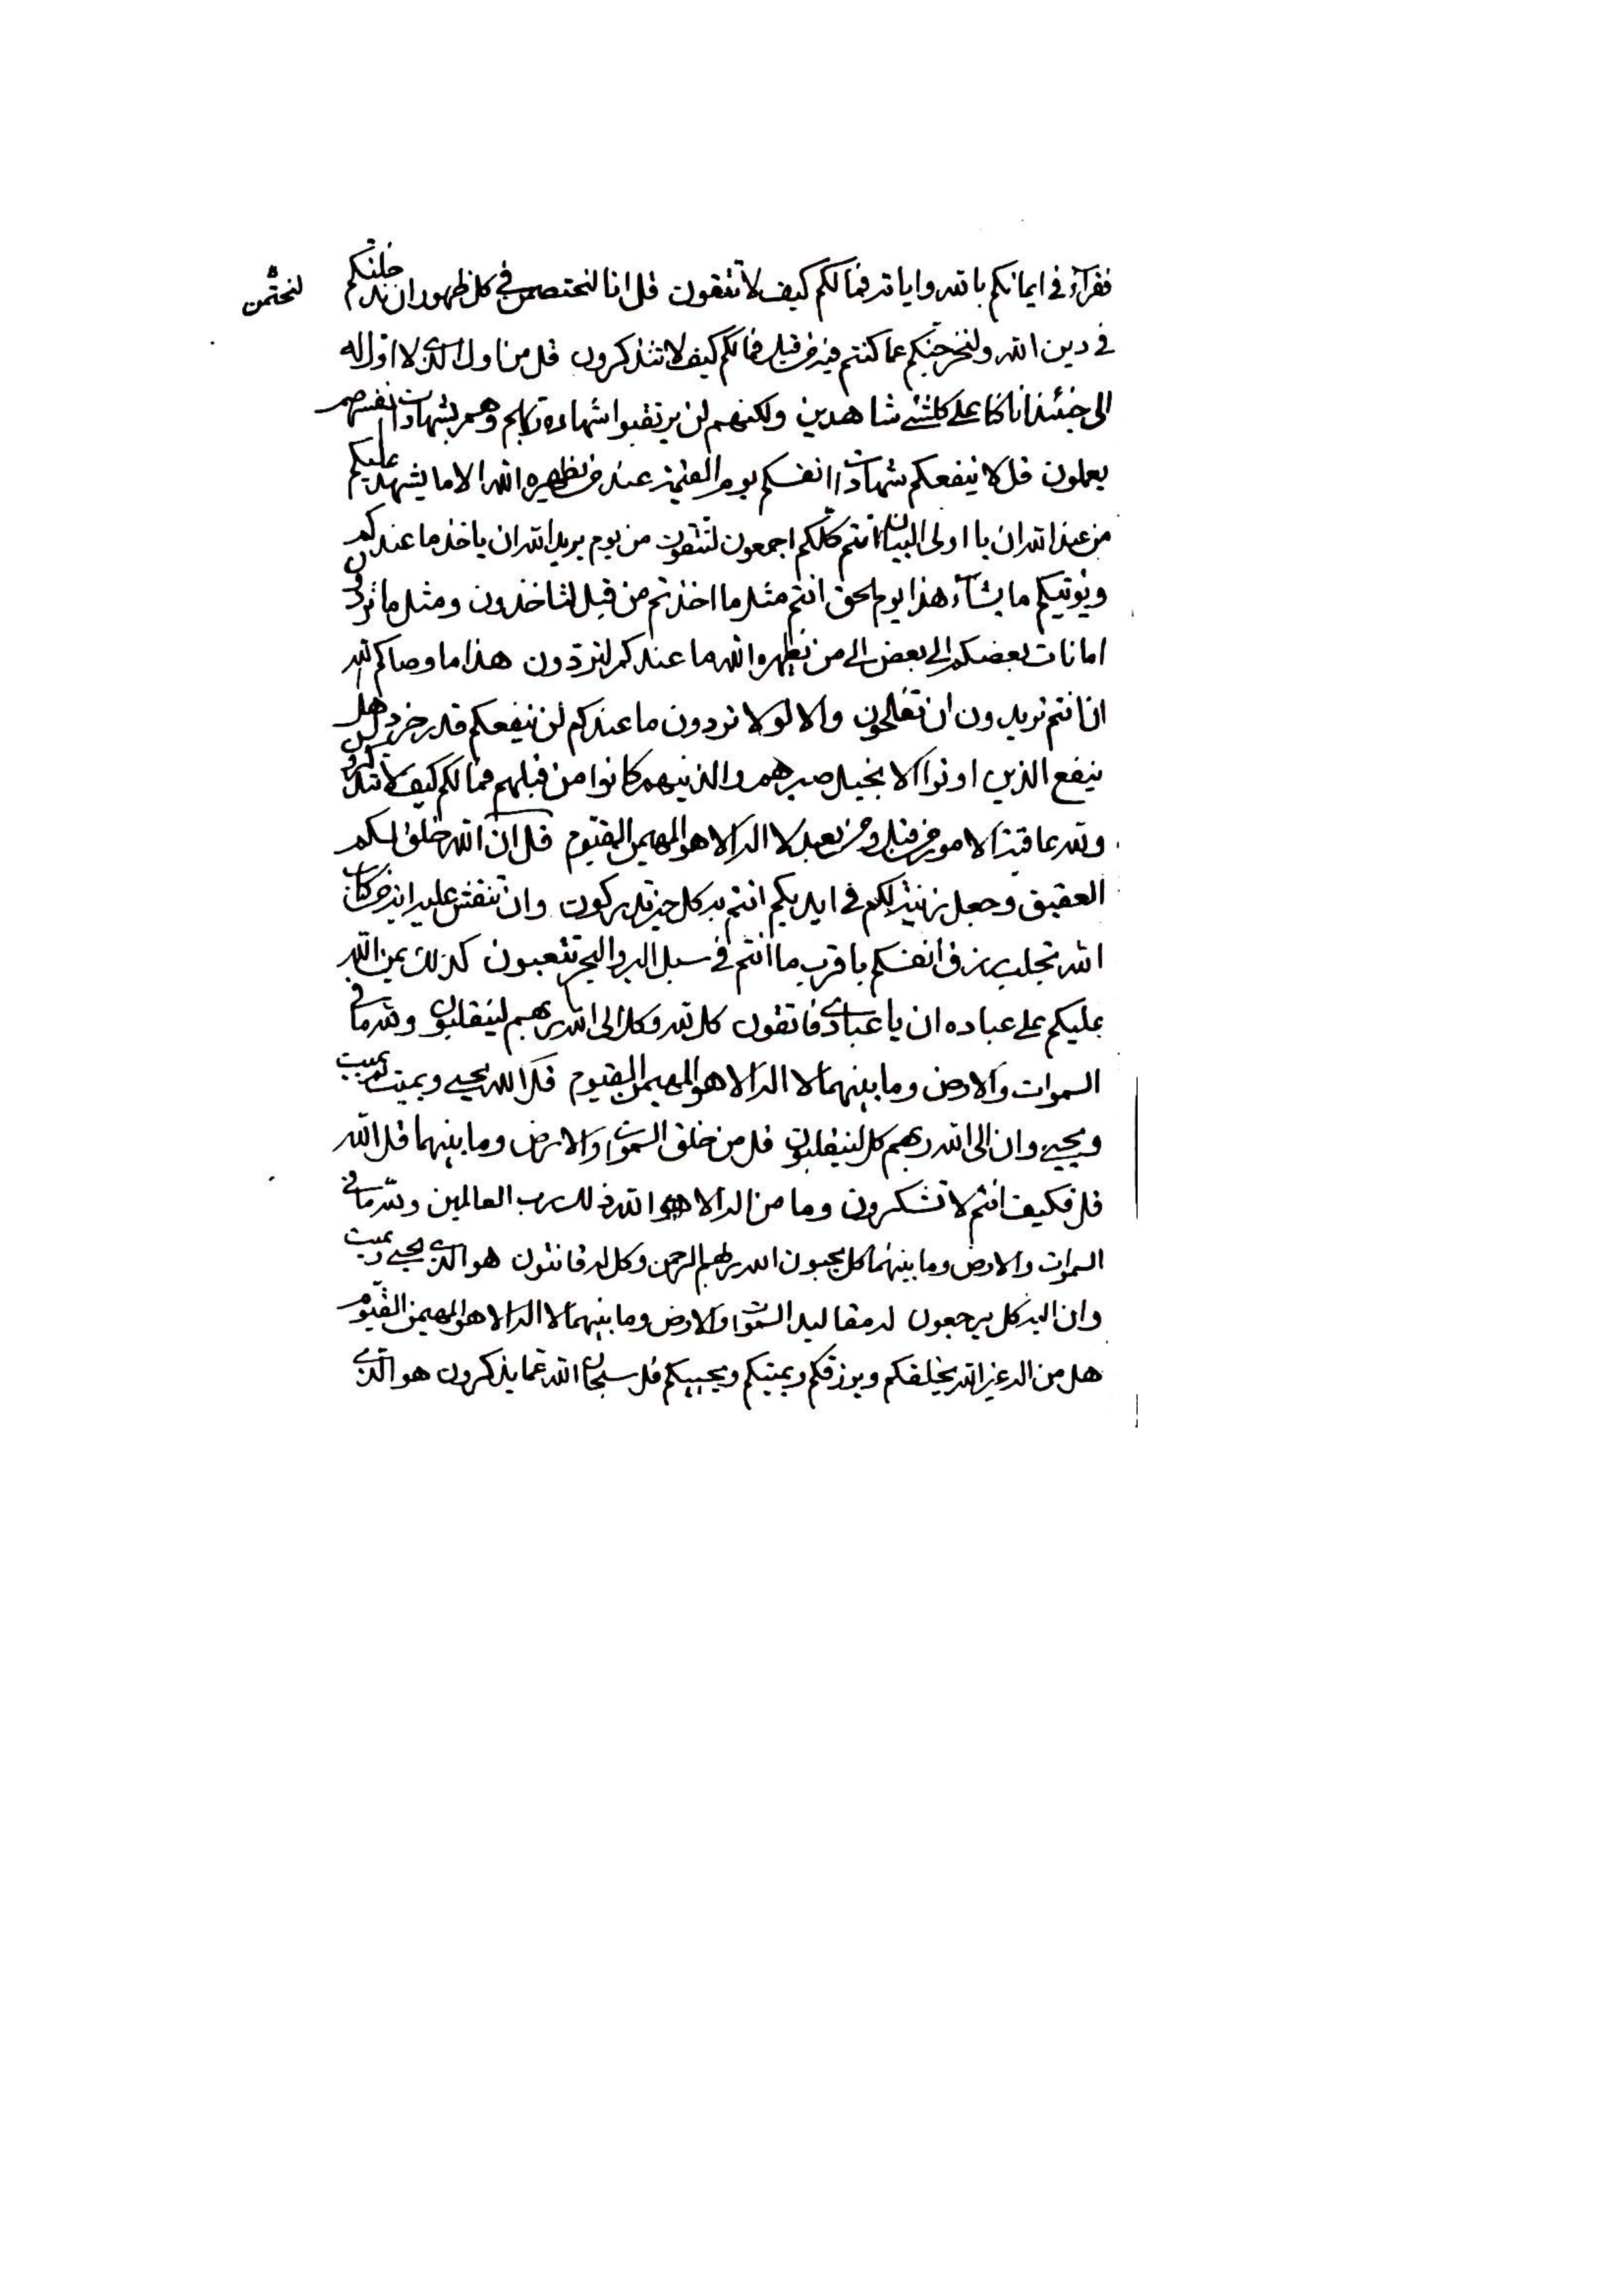 فقرآء في ايمانكم بالله واياته فما لكم كيف لا تتقون قل انا لنحتصمن في كل ظهور ان يدخلنكم
لنحتمن
في دين الله ولنخرجنكم عما كنتم فيه من قبل فما لكم كيف لا تتذكرون قل من اول الذي لا اول له
الى حينئذ انا كنا على كلشئ شاهدين ولكنهم لن يرتقبوا شهادة ربهم وهم بشهادات انفسهم
يعملون قل لا ينفعكم شهادات انفسكم يوم القيمة عند من يظهره الله الا ما يشهد عليكم
من عند الله ان يا اولى البيان انتم كلكم اجمعون لتتقون من يوم يريد الله ان ياخذ ما عندكم
ويؤتيكم ما يشآء هذا يوم لحق انتم مثل ما اخذتم من قبل لتاخذون ومثل ما تردون
امانات بعضكم الى بعض الى من يظهره الله ما عندكم لتردون هذا ما وصاكم الله
ان انتم تريدون ان تفلحون والا لو لا تردون ما عندكم لن ينفعكم قدر خردل هل
ينفع الذين اوتوا الانجيل صبرهم والذينهم كانوا من قبلهم فما لكم كيف لا تتذكرون
ولله عاقبة الامور من قبل ومن بعد لا اله الا هو المهيمن القيوم قل ان الله خلق لكم
العقيق وجعل زينة لكم في ايديكم انتم به كل خير تدركون وان تنقش عليه اية من كتاب
الله تجلب رزق انفسكم باقرب ما انتم في سبل البر والبحر تتعبون كذلك يمن الله
عليكم على عباده ان يا عبادي فاتقون كل لله وكل الى الله ربهم لينقلبون ولله ما في
السموات والارض وما بينهما لا اله الا هو المهيمن القيوم قل الله يحيي ويميت ثم يميت
ويحيي وان الى الله ربهم كل لينقلبون قل من خلق السموات والارض وما بينهما قل الله
قل فكيف انتم لا تشكرون وما من اله الا هو الله ذلك رب العالمين ولله ما في
السموات والارض وما بينهما كل يحبون الله ربهم الرحمن وكل له قانتون هو الذي يحيي ويميت
وان اليه كل يرجعون له مقاليد السموات والارض وما بينهما لا اله الا هو المهيمن القيوم
هل من اله غير الله يخلقكم ويرزقكم ويميتكم ويحييكم قل سبحان الله عما يذكرون هو الذي